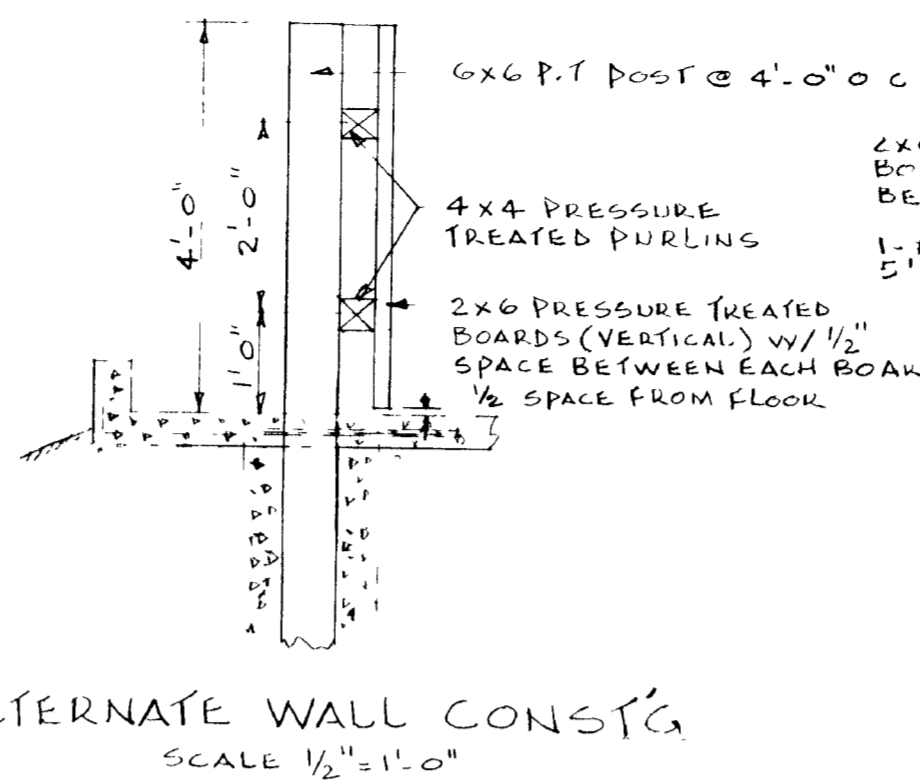 6X6 P.T POST @ 4'-0" O C
4'-0"
2'-0"
1'0"
4X4 PRESSURE
TREATED PURLINS
2X6 PRESSURE TREATED
BOARDS (VERTICAL) W/ 1/2"
SPACE BETWEEN EACH BOAR
1/2 SPACE FROM FLOOR
BO
BE
5'
LTERNATE WALL CONST'G
SCALE 1/2"=1'-0"